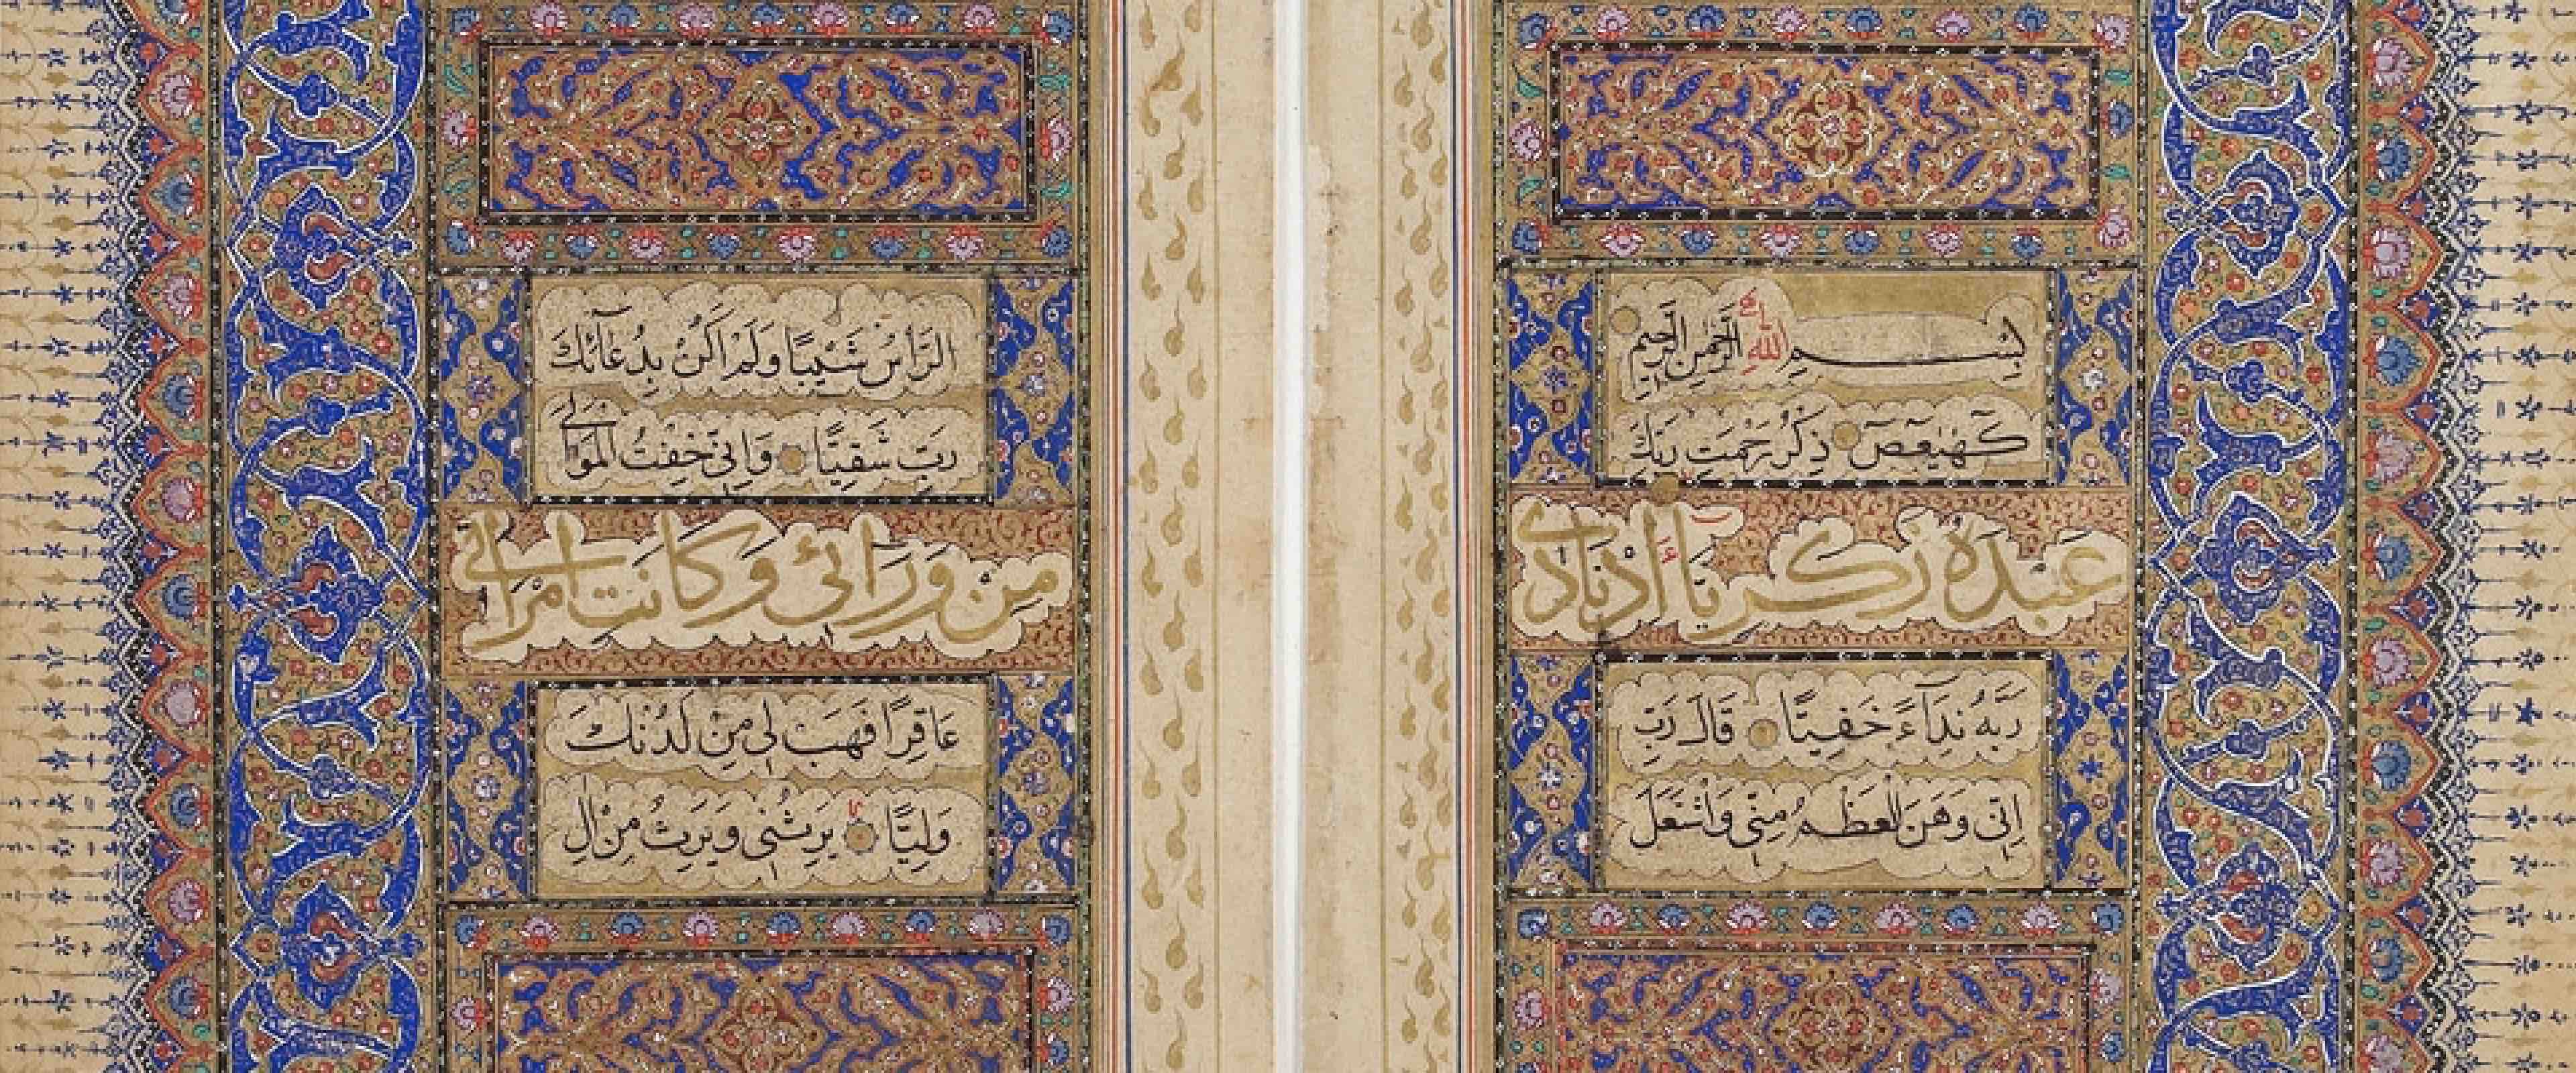 بِسْمِ اللهِ الرَّحْمٰنِ الرَّحِيمِ
كٓهٰيٰعٓصٓ ذِكْرُ رَحْمَتِ رَبِّكَ
عَبْدَهُ زَكَرِيَّاءَ إِذْ نَادَى
رَبَّهُ نِدَآءً خَفِيًّا قَالَ رَبِّ
اِنِّى وَهَنَ الْعَظْمُ مِنِّى وَاشْتَعَلَ
الرَّأْسُ شَيْبًا وَلَمْ اَكُنْ بِدُعَآئِكَ
رَبِّ شَقِيًّا وَاِنِّى خِفْتُ الْمَوَالِىَ
مِنْ وَرَآئِى وَكَانَتِ امْرَاَتِى
عَاقِرًا فَهَبْ لِى مِنْ لَدُنْكَ
وَلِيًّا يَرِثُنِى وَيَرِثُ مِنْ اٰلِ